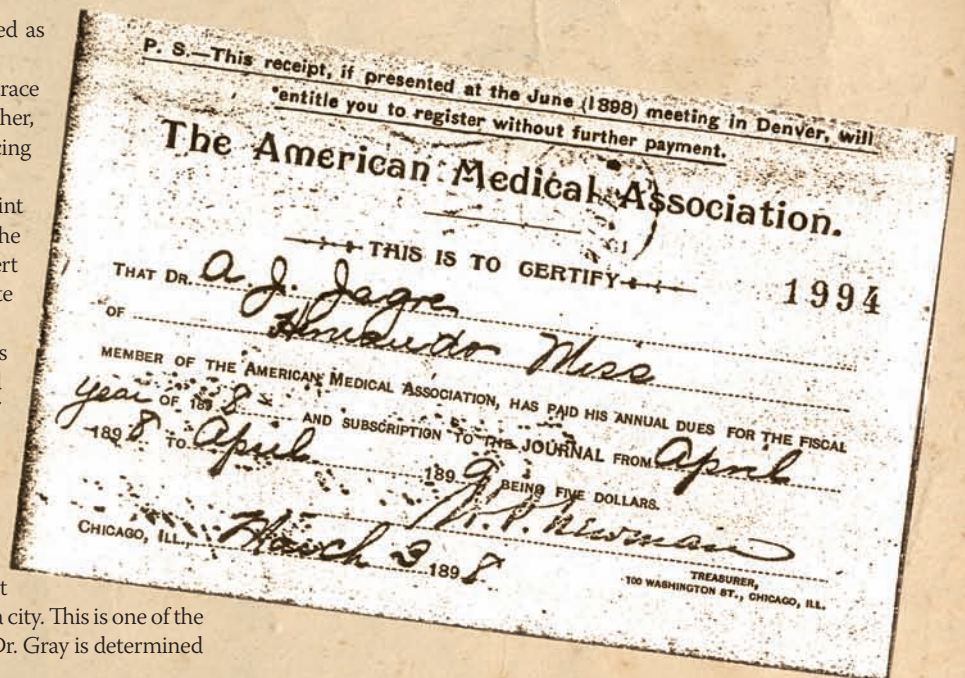 ed as
race
her,
cing
int
he
ert
te
s
t
city. This is one of the
Dr. Gray is determined
P. S.—This receipt, if presented at the June (1898) meeting in Denver, will
entitle you to register without further payment.
The American Medical Association.
THIS IS TO CERTIFY
1994
THAT DR. A. J. Jagre
OF Miss
MEMBER OF THE AMERICAN MEDICAL ASSOCIATION, HAS PAID HIS ANNUAL DUES FOR THE FISCAL
year OF 1898 AND SUBSCRIPTION TO THE JOURNAL FROM April
1898 TO April 1899 BEING FIVE DOLLARS.
Newman
CHICAGO, ILL., March 3 1898
TREASURER,
100 WASHINGTON ST., CHICAGO, ILL.